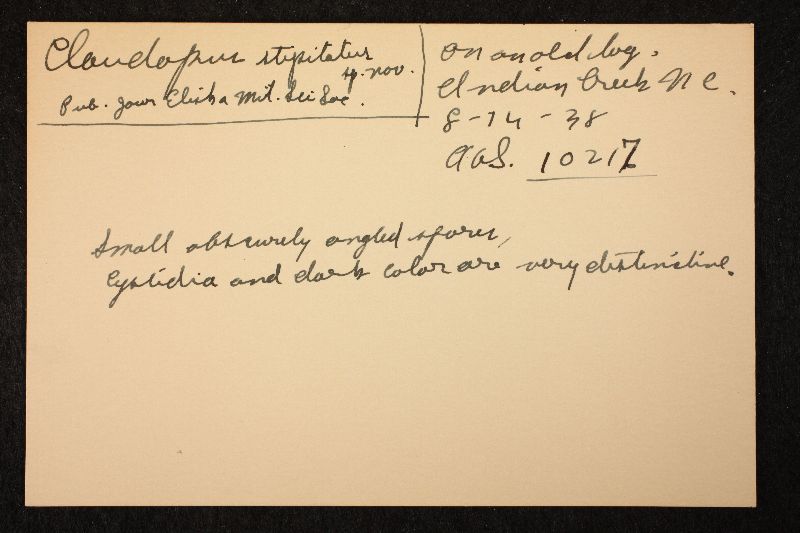 Claudopus stipitatus
sp. nov.
Pub. Jour Elisha Mit. Sci Soc.
on an old log.
Indian Creek N C.
8-14-38
10217
Small obscurely angled spores,
Cystidia and dark color are very distinctive.